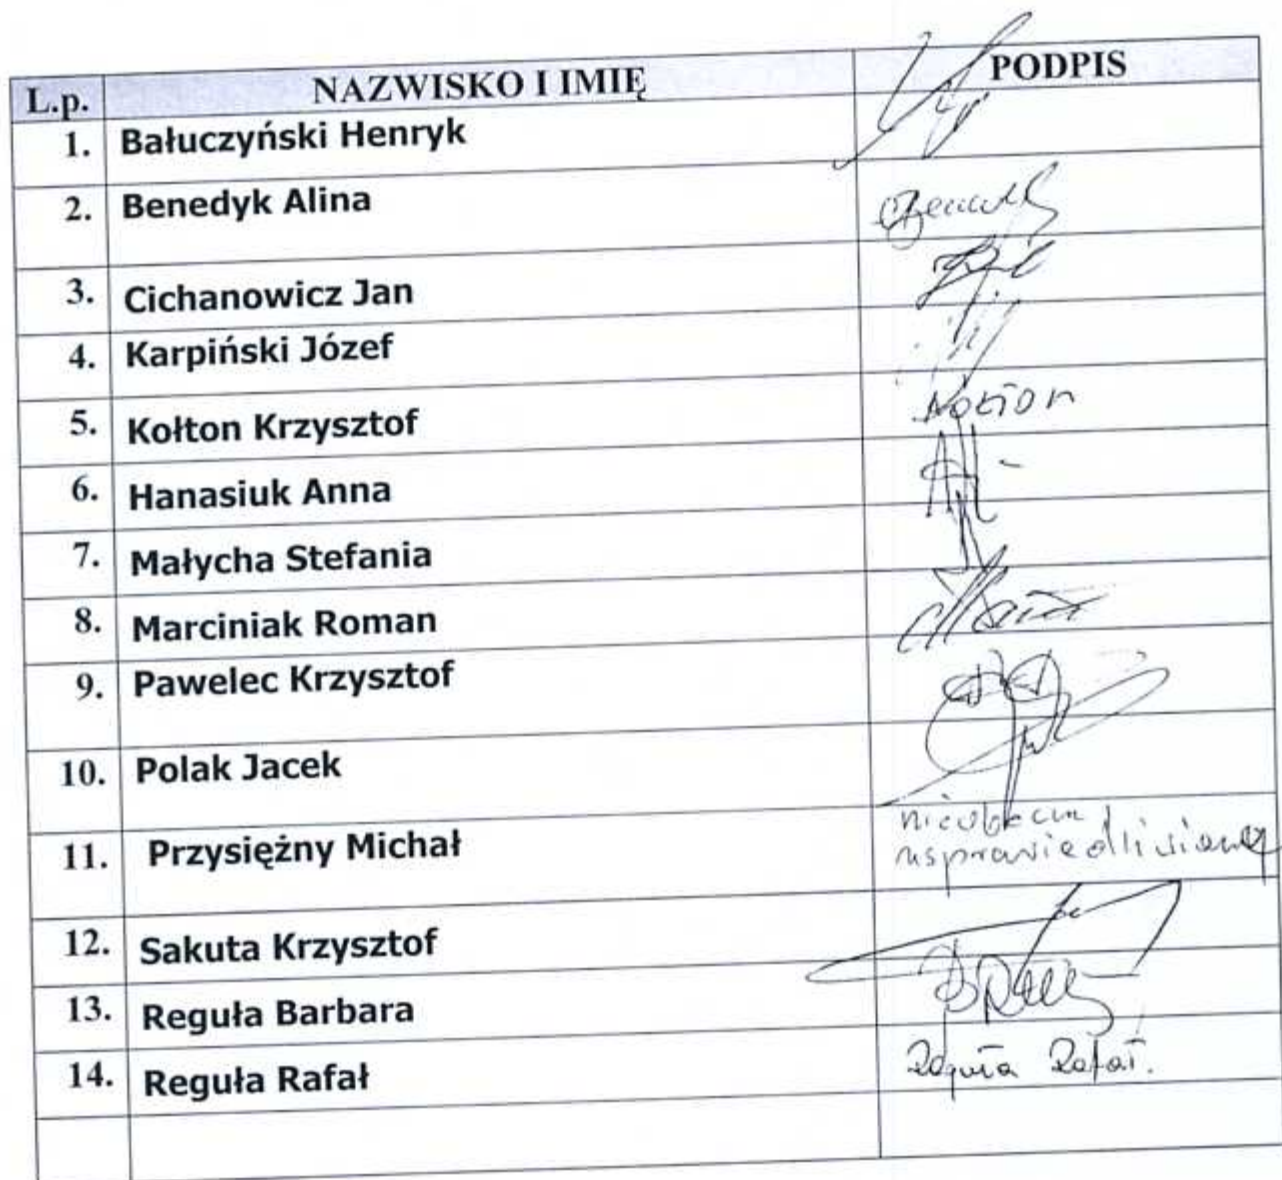 L.p. NAZWISKO I IMIĘ PODPIS
1. Bałuczyński Henryk
2. Benedyk Alina
3. Cichanowicz Jan
4. Karpiński Józef
5. Kołton Krzysztof Kołton
6. Hanasiuk Anna
7. Małycha Stefania
8. Marciniak Roman
9. Pawelec Krzysztof
10. Polak Jacek
11. Przysiężny Michał nieobecny
usprawiedliwiony
12. Sakuta Krzysztof
13. Reguła Barbara
14. Reguła Rafał Reguła Rafał.